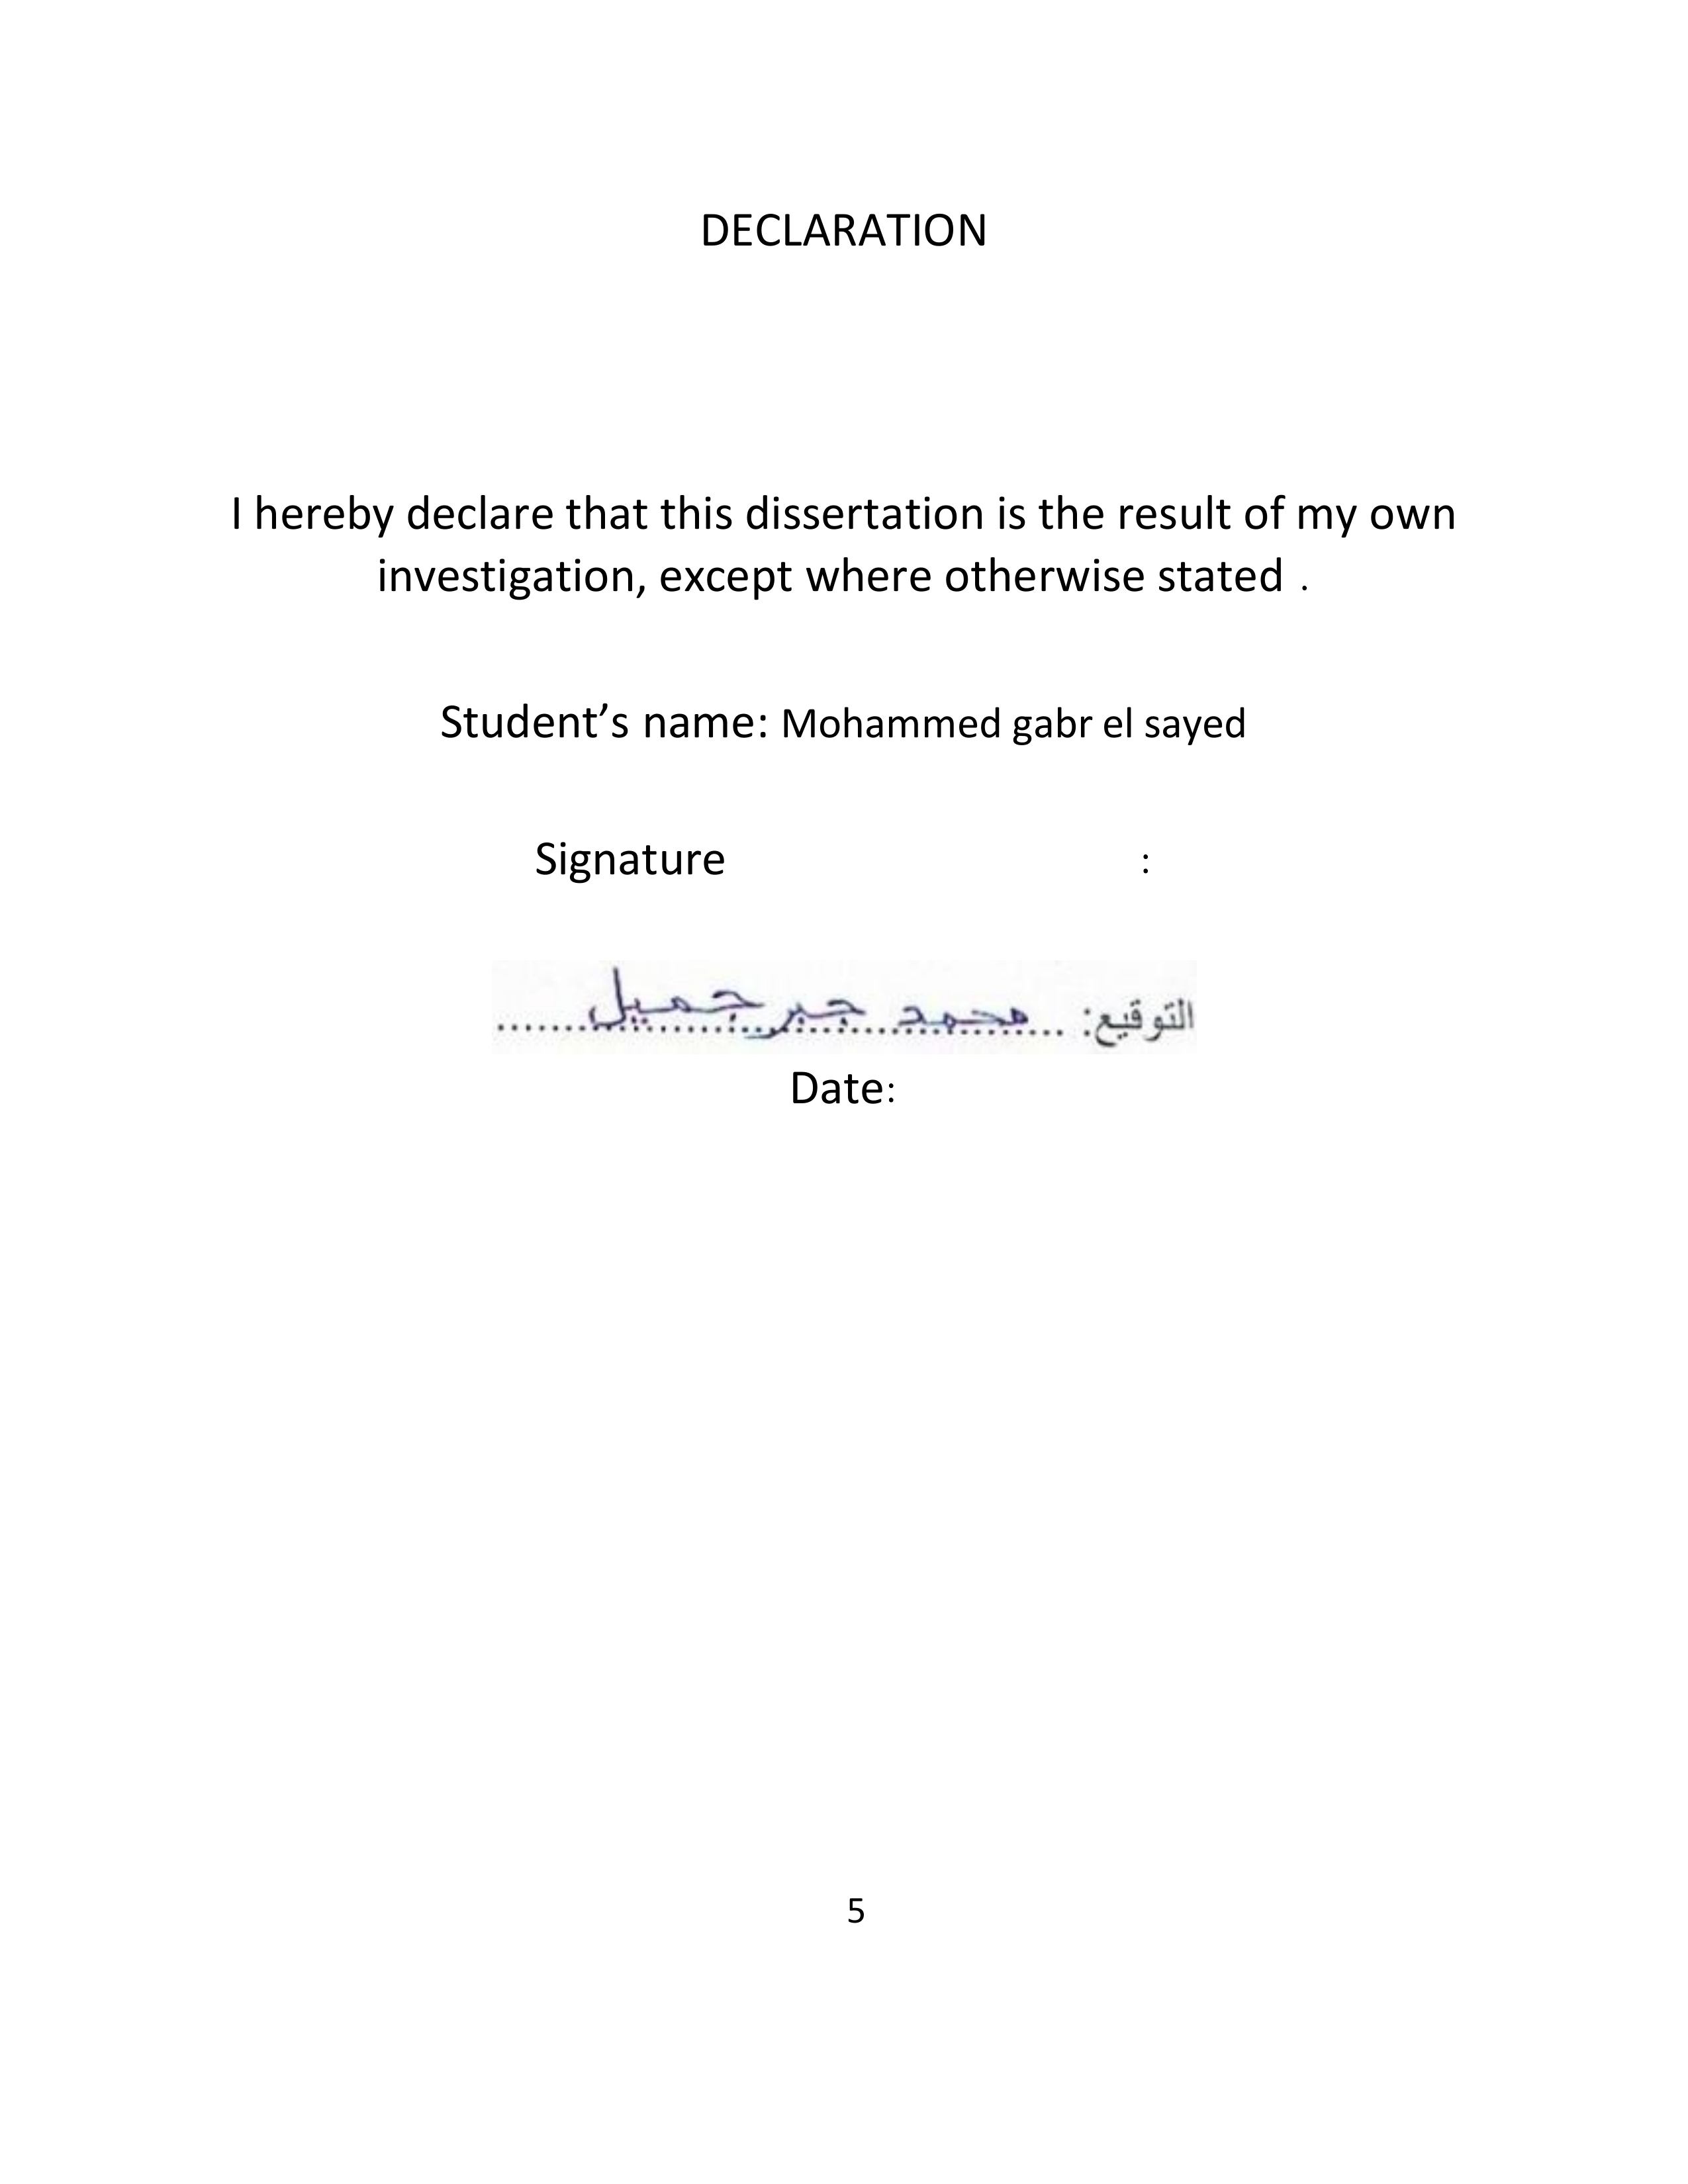 DECLARATION
I hereby declare that this dissertation is the result of my own
investigation, except where otherwise stated .
Student’s name: Mohammed gabr el sayed
Signature :
التوقيع: محمد جبر جميل
Date:
5